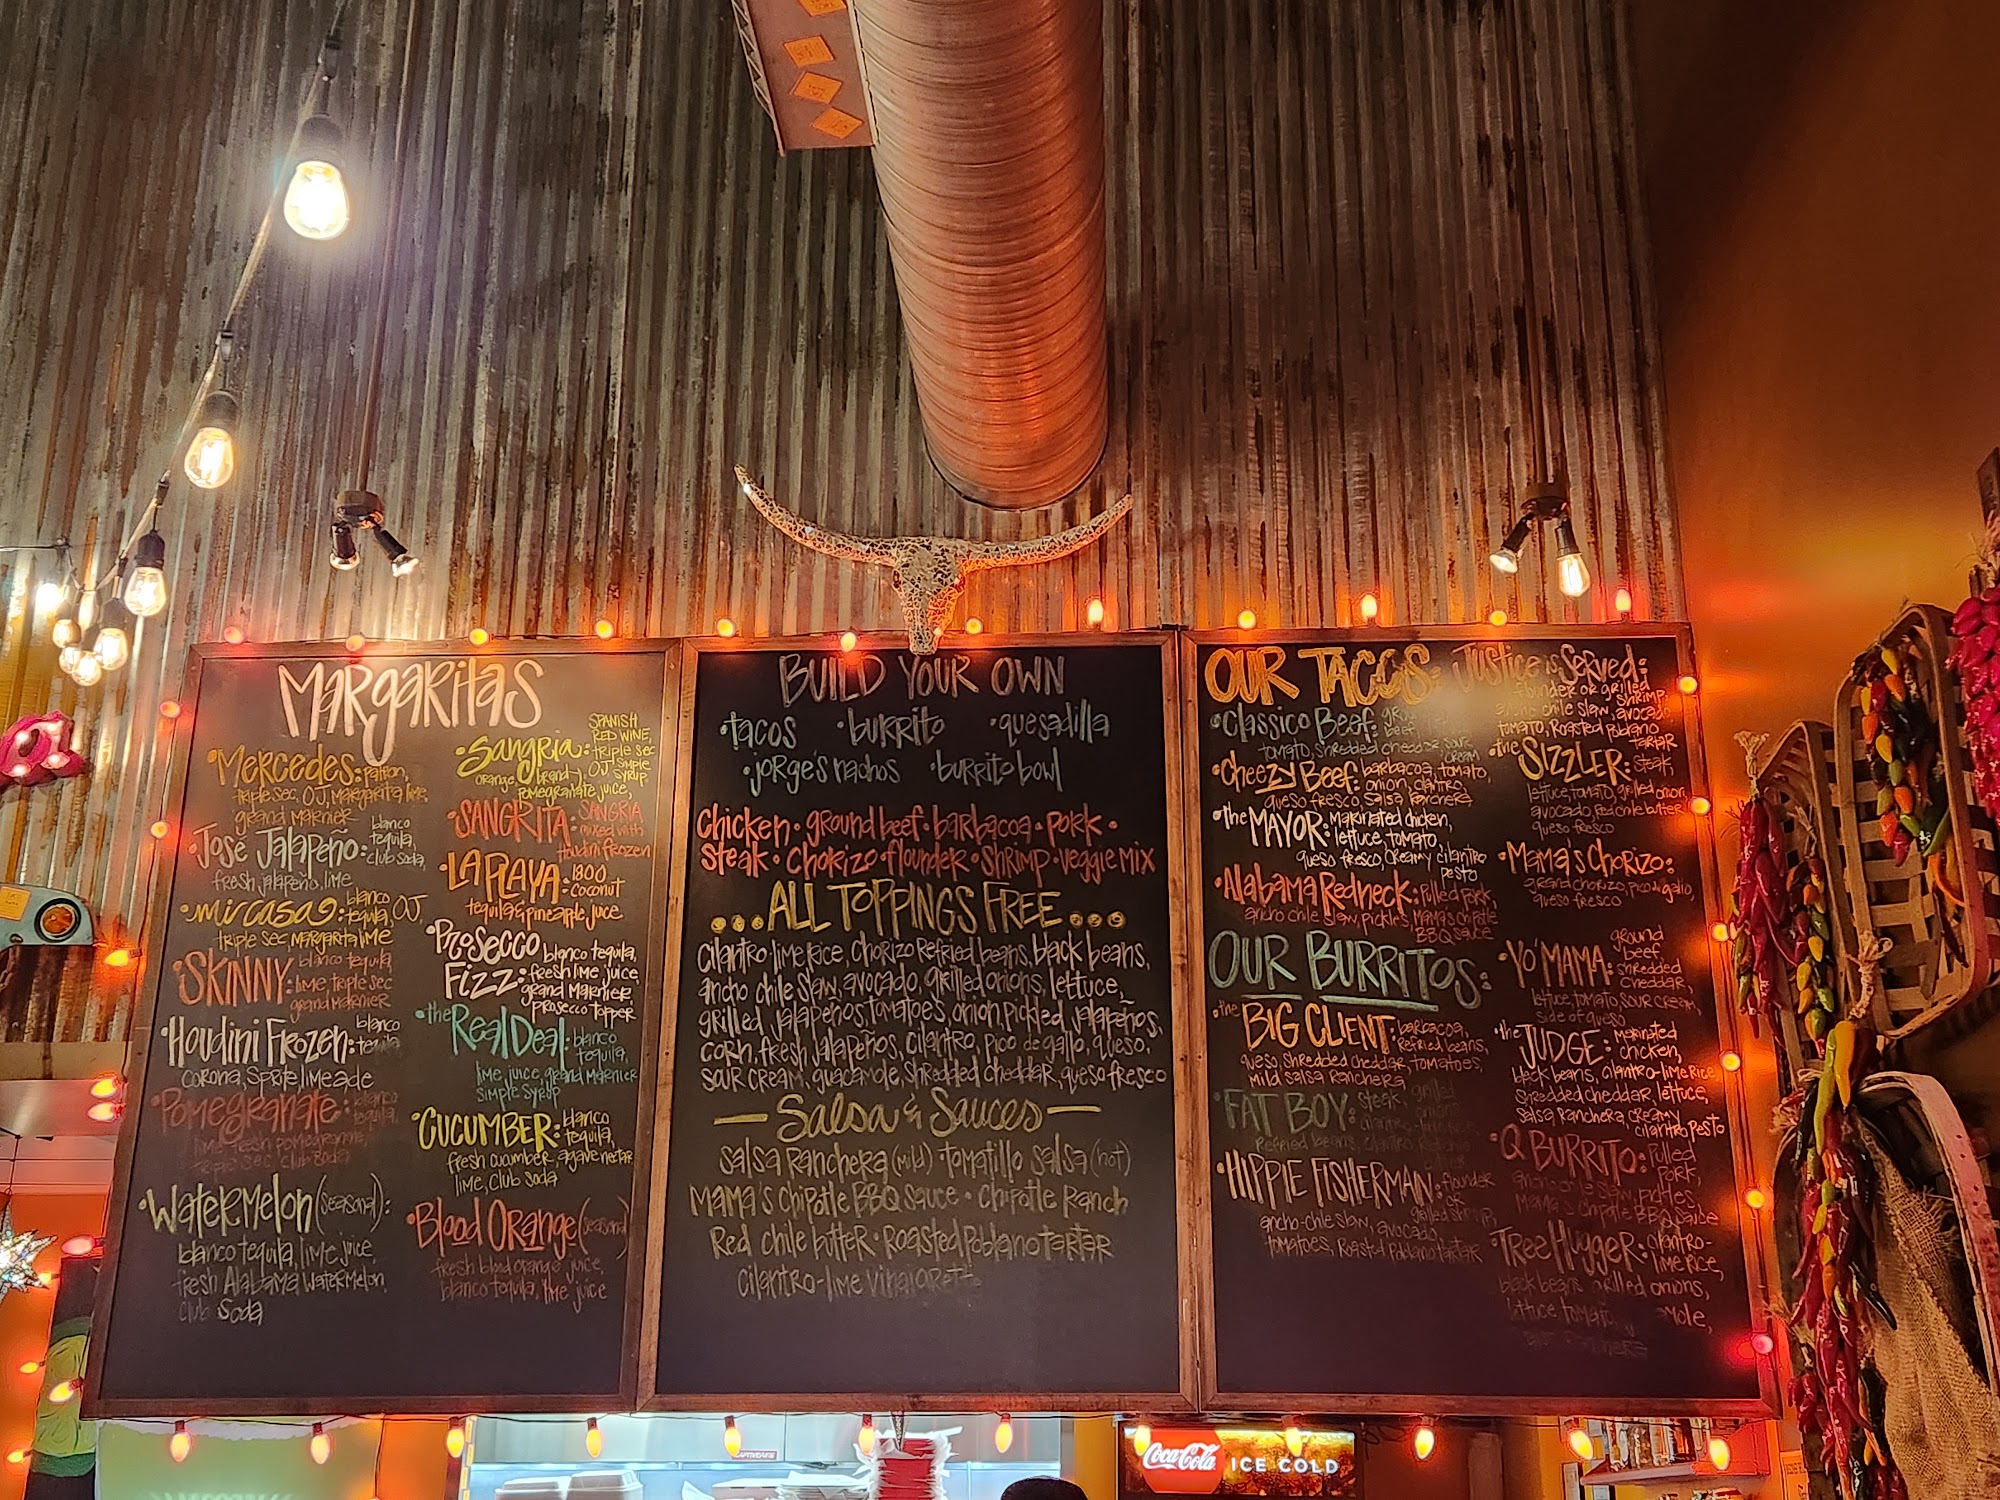 MARGARITAS
•MERCEDES: patron,
triple sec, OJ, margarita lime,
grand marnier
•José Jalapeño: blanco
tequila,
club soda,
fresh jalapeño, lime
•mi casa: blanco
tequila, OJ,
triple sec margarita lime
•SKINNY: blanco tequila,
lime, triple sec
grand marnier
•Houdini Frozen: blanco
tequila
corona, Sprite, limeade
•Pomegranate: blanco
tequila,
lime, fresh pomegranate,
triple sec, club soda
•WaterMelon (seasonal):
blanco tequila, lime juice
fresh Alabama watermelon
club soda
•Sangria: SPANISH
RED WINE,
triple sec
OJ, simple
syrup,
orange, brandy,
pomegranate juice,
•SANGRITA: SANGRIA
mixed with
Houdini frozen
•LA PLAYA: 1800
coconut
tequila & pineapple juice
•Prosecco
Fizz: blanco tequila,
fresh lime juice,
grand marnier,
prosecco topper
•the Real Deal: blanco
tequila,
lime juice, grand marnier
simple syrup
•CUCUMBER: blanco
tequila,
fresh cucumber, agave nectar
lime, club soda
•Blood Orange (seasonal)
fresh blood orange juice,
blanco tequila, lime juice
BUILD YOUR OWN
•tacos •burrito •quesadilla
•jorge's nachos •burrito bowl
Chicken • ground beef • barbacoa • pork •
steak • chorizo • flounder • shrimp • veggie mix
...ALL TOPPINGS FREE...
cilantro-lime rice, chorizo refried beans, black beans,
ancho chile slaw, avocado, grilled onions, lettuce,
grilled jalapeños, tomatoes, onion, pickled jalapeños,
corn, fresh jalapeños, cilantro, pico de gallo, queso,
sour cream, guacamole, shredded cheddar, queso fresco
— Salsa & Sauces —
salsa ranchera (mild) tomatillo salsa (hot)
Mama's chipotle BBQ sauce • Chipotle Ranch
Red chile butter • Roasted Poblano tartar
cilantro-lime vinaigrette
OUR TACOS:
•Classico Beef: ground
beef,
tomato, shredded cheddar, sour
cream
•Cheezy Beef: barbacoa, tomato,
onion, cilantro,
queso fresco, salsa ranchera
•the MAYOR: marinated chicken,
lettuce, tomato,
queso fresco, creamy cilantro
pesto
•Alabama Redneck: pulled pork,
ancho chile slaw, pickles, Mama's chipotle
BBQ sauce
Justice is Served:
flounder or grilled
shrimp,
ancho chile slaw, avocado,
tomato, Roasted Poblano
tartar
•the SIZZLER: steak,
lettuce, tomato, grilled onion,
avocado, red chile butter
queso fresco
•Mama's Chorizo:
grand chorizo, pico de gallo,
queso fresco
OUR BURRITOS:
•the BIG CLIENT: barbacoa,
refried beans,
queso, shredded cheddar, tomatoes,
mild salsa ranchera
•FAT BOY: steak, grilled
onions,
cilantro-lime rice
refried beans, cilantro
•HIPPIE FISHERMAN: flounder
or
grilled shrimp,
ancho-chile slaw, avocado,
tomatoes, Roasted Poblano tartar
•YO' MAMA: ground
beef,
shredded
cheddar,
lettuce, tomato, sour cream,
side of queso
•the JUDGE: marinated
chicken,
black beans, cilantro-lime rice
shredded cheddar, lettuce,
salsa ranchera, creamy
cilantro pesto
•Q BURRITO: Pulled
pork,
ancho chile slaw, pickles,
Mama's chipotle BBQ sauce
•Tree Hugger: cilantro-
lime rice,
black beans, grilled onions,
lettuce, tomato,
Coca-Cola ICE COLD